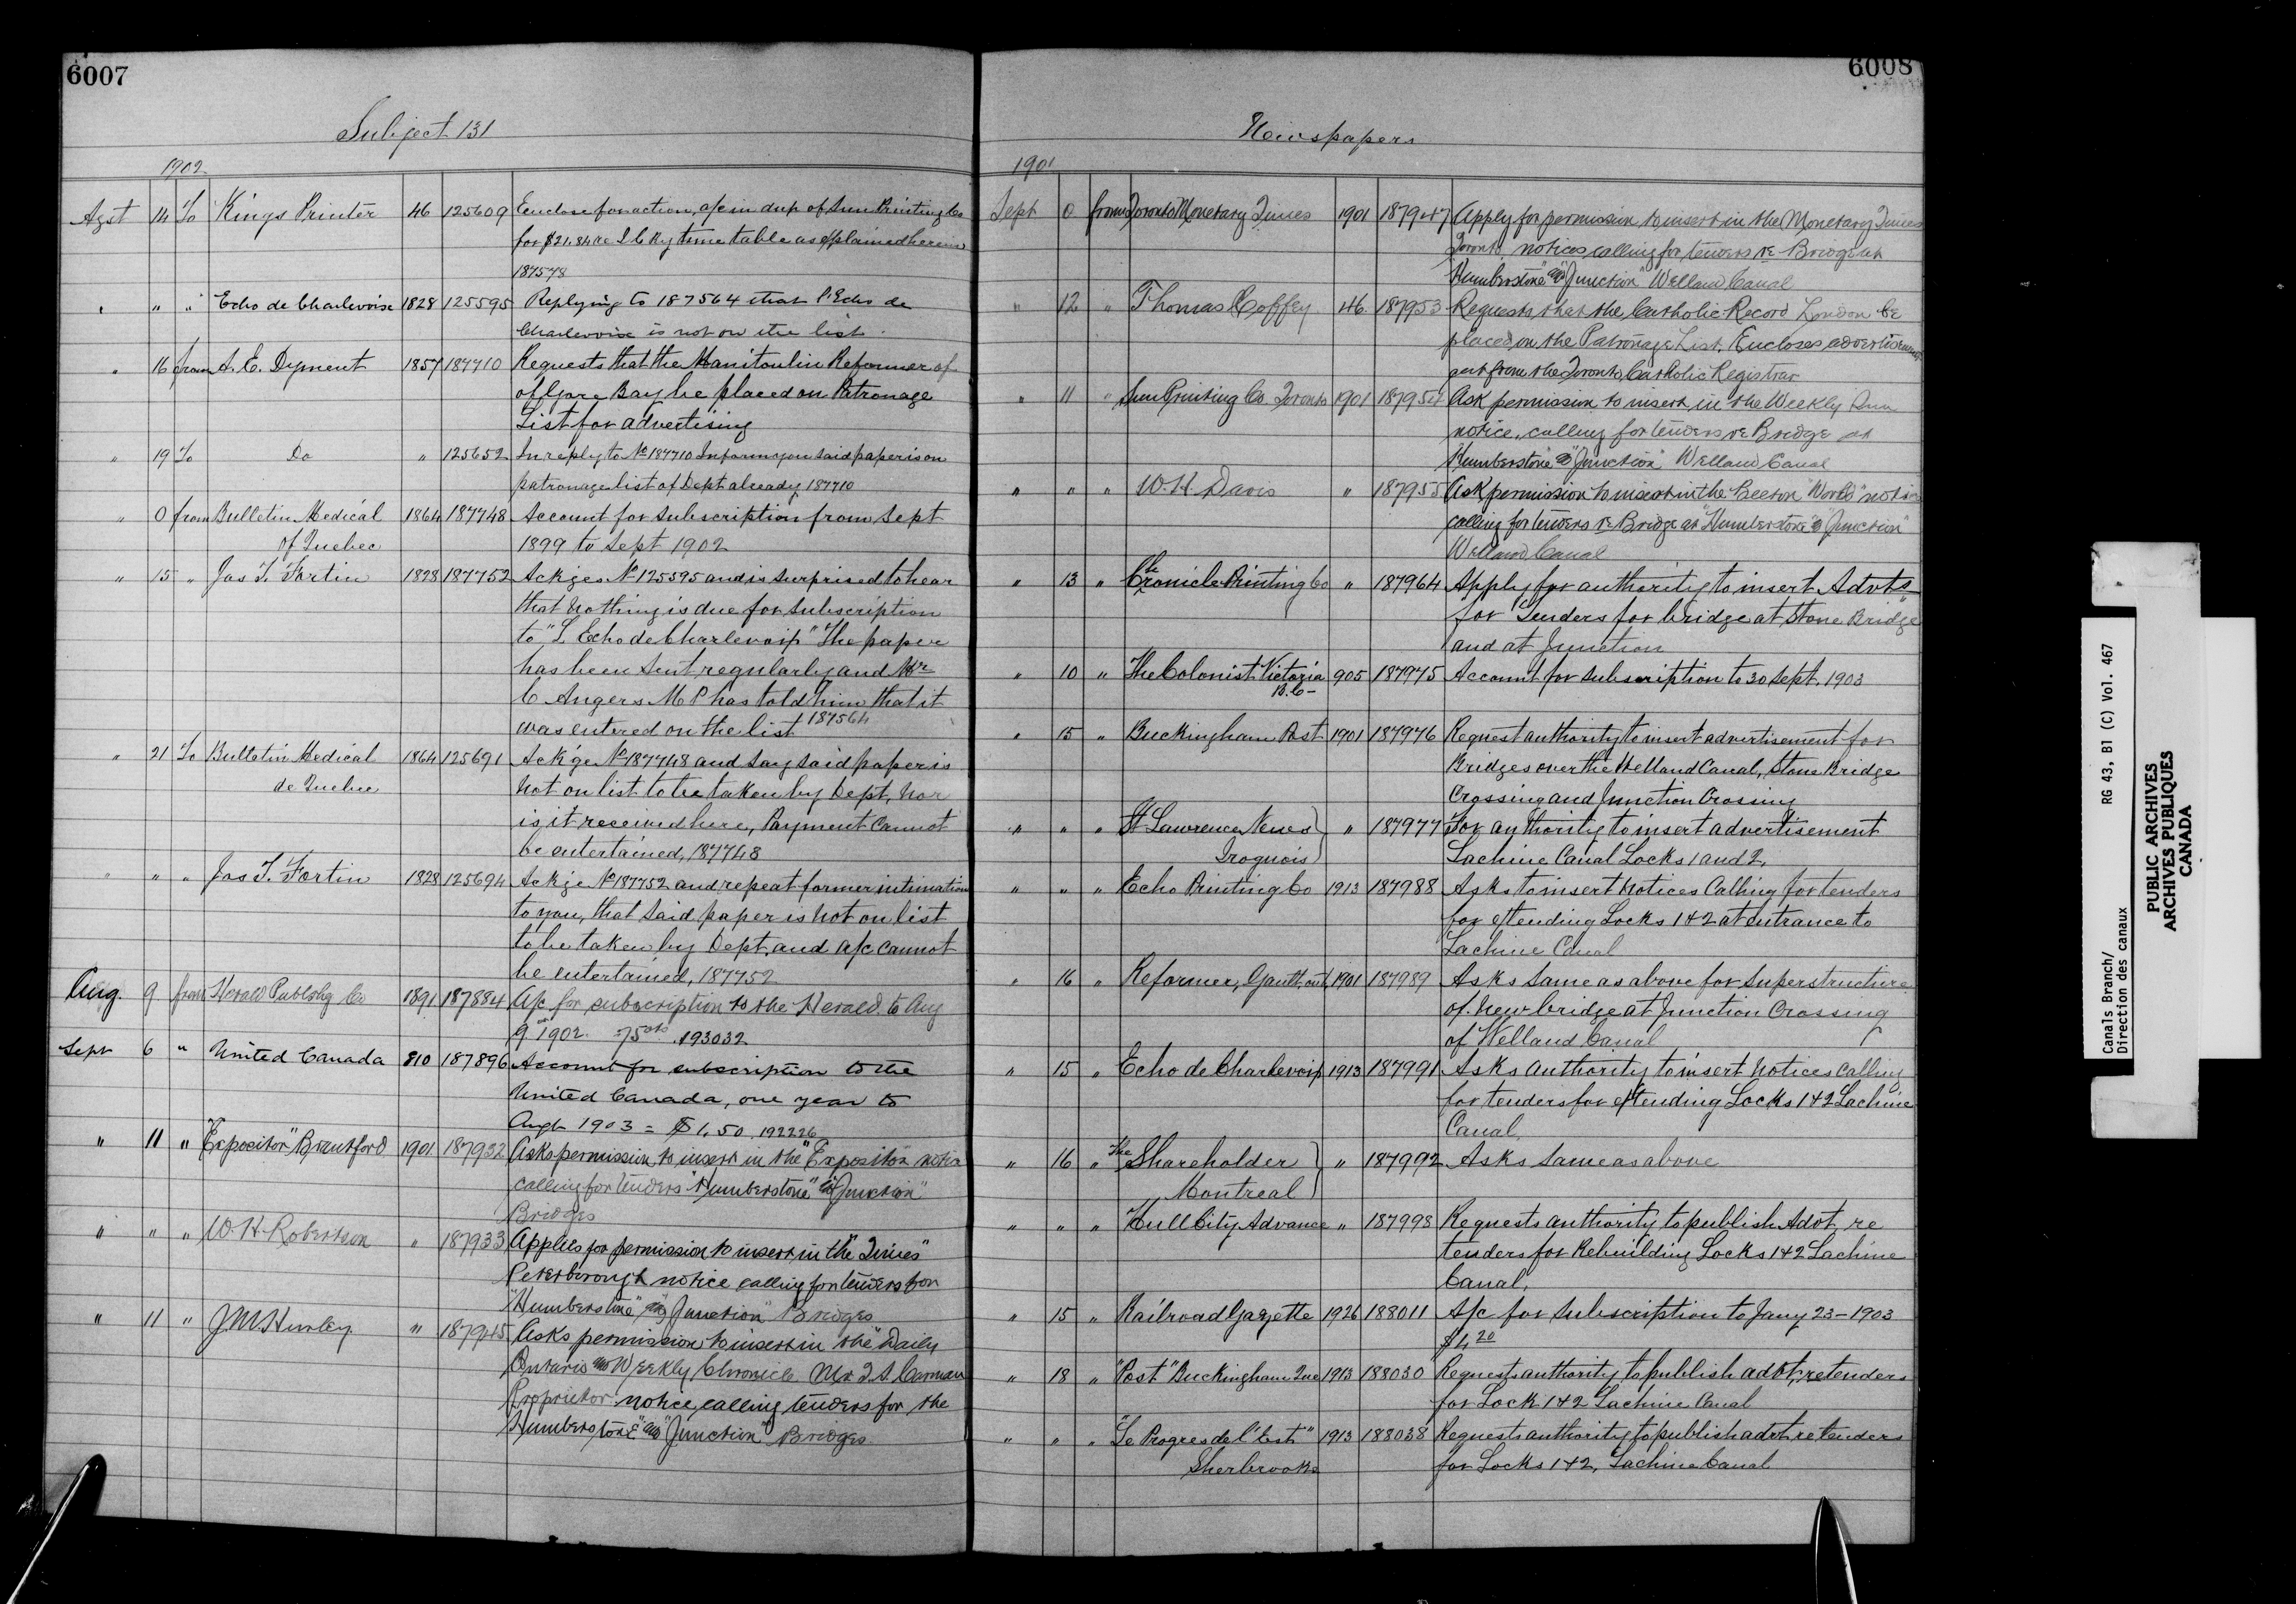 6007
Subject 131
1902
Agst 14 To Kings Printer 46 125609 Enclose for action, a/c in dup of Sun Printing Co
for $21.84 re I C Ry time table as explained herein
187578
" " " Echo de Charlevoix 1828 125595 Replying to 187564 that l'Echo de
Charlevoix is not on the list.
" 16 from A. E. Dyment 1857 187710 Requests that the Manitoulin Reformer of
of Gore Bay be placed on Patronage
List for advertising
" 19 To Do " 125652 In reply to No 187710 Inform you said paper is on
patronage list of Dept already, 187710
" 0 from Bulletin Medical 1864 187748 Account for Subscription from Sept
of Quebec 1899 to Sept 1902
" 15 " Jas T. Fortin 1828 187752 Ackges No 125595 and is surprised to hear
that nothing is due for subscription
to "L Echo de Charlevoix" The paper
has been sent regularly and Mr
C Angers M P has told him that it
was entered on the list 187564
" 21 To Bulletin Medical 1864 125691 Ack'ge No 187748 and say said paper is
de Quebec not on list to be taken by Dept, nor
is it received here, Payment cannot
be entertained, 187748
" " " Jas T. Fortin 1828 125694 Ackge No 187752 and repeat former intimation
to you, that said paper is not on list
to be taken by Dept. and a/c cannot
be entertained, 187752
Aug. 9 from Herald Publshg Co 1891 187884 A/c for subscription to the Herald to Aug
9th 1902. 75cts 193032
Sept 6 " United Canada 810 187896 Account for subscription to the
United Canada, one year to
Augt 1903 = $1.50. 192226
" 11 " "Expositor" Brantford 1901 187932 Asks permission to insert in the "Expositor" notice
calling for tenders "Humberstone" and "Junction"
Bridges
" " " W. H. Robertson " 187933 Applies for permission to insert in the "Times"
Peterborough notice calling for tenders for
"Humberstone" and "Junction" Bridges
" 11 " J M Hurley " 187945 Asks permission to insert in the "Daily
Ontario and Weekly Chronicle Mr T. S. Carman
Proprietor notice calling tenders for the
"Humberstone" and "Junction" Bridges
6008
Newspapers
1901
Sept 0 from Toronto Monetary Times 1901 187947 Apply for permission to insert in the Monetary Times
Toronto, notices calling for tenders re Bridge at
"Humberstone" and "Junction" Welland Canal
" 12 " Thomas Coffey 46 187953 Requests that the Catholic Record London be
placed on the Patronage List. Encloses advertisement
cut from the Toronto Catholic Registrar
" 11 " Sun Printing Co. Toronto 1901 187954 Ask permission to insert in the Weekly Sun
notice, calling for tenders re Bridge at
"Humberstone" & "Junction" Welland Canal
" " " W. H. Davis " 187955 Ask permission to insert in the Beeton "World" notice
calling for tenders re Bridge at "Humberstone" & "Junction"
Welland Canal
" 13 " Chronicle Printing Co " 187964 Apply for authority to insert Advts
for Tenders for bridge at Stone Bridge
and at Junction
" 10 " The Colonist Victoria 905 187975 Account for subscription to 30 Sept. 1903
B.C-
" 15 " Buckingham Post 1901 187976 Request authority to insert advertisement for
Bridges over the Welland Canal, Stone Bridge
Crossing and Junction Crossing
" " " St Lawrence News " 187977 For authority to insert advertisement
Iroquois Lachine Canal Locks 1 and 2,
" " " Echo Printing Co 1913 187988 Asks to insert notices Calling for tenders
for extending Locks 1 & 2 at entrance to
Lachine Canal
" 16 " Reformer, Gault, ont 1901 187989 Asks same as above for Superstructure
of new bridge at Junction Crossing
of Welland Canal
" 15 " Echo de Charlevoix 1913 187991 Asks authority to insert notices calling
for tenders for extending Locks 1 & 2 Lachine
Canal.
" 16 " The Shareholder " 187992 Asks same as above
Montreal
" " " Hull City Advance " 187998 Requests authority to publish Advt, re
tenders for Rebuilding Locks 1 & 2 Lachine
Canal.
" 15 " Railroad Gazette 1926 188011 A/c for subscription to Jany 23 - 1903
$4.20
" 18 " "Post" Buckingham Que 1913 188030 Requests authority to publish advt, re tenders
for Lock 1 & 2 Lachine Canal
" " " "Le Progres de l'Est" 1913 188038 Requests authority to publish advt re tenders
Sherbrooke for Locks 1 & 2, Lachine Canal
Canals Branch/ RG 43, B1 (C) Vol. 467
Direction des canaux
PUBLIC ARCHIVES
ARCHIVES PUBLIQUES
CANADA